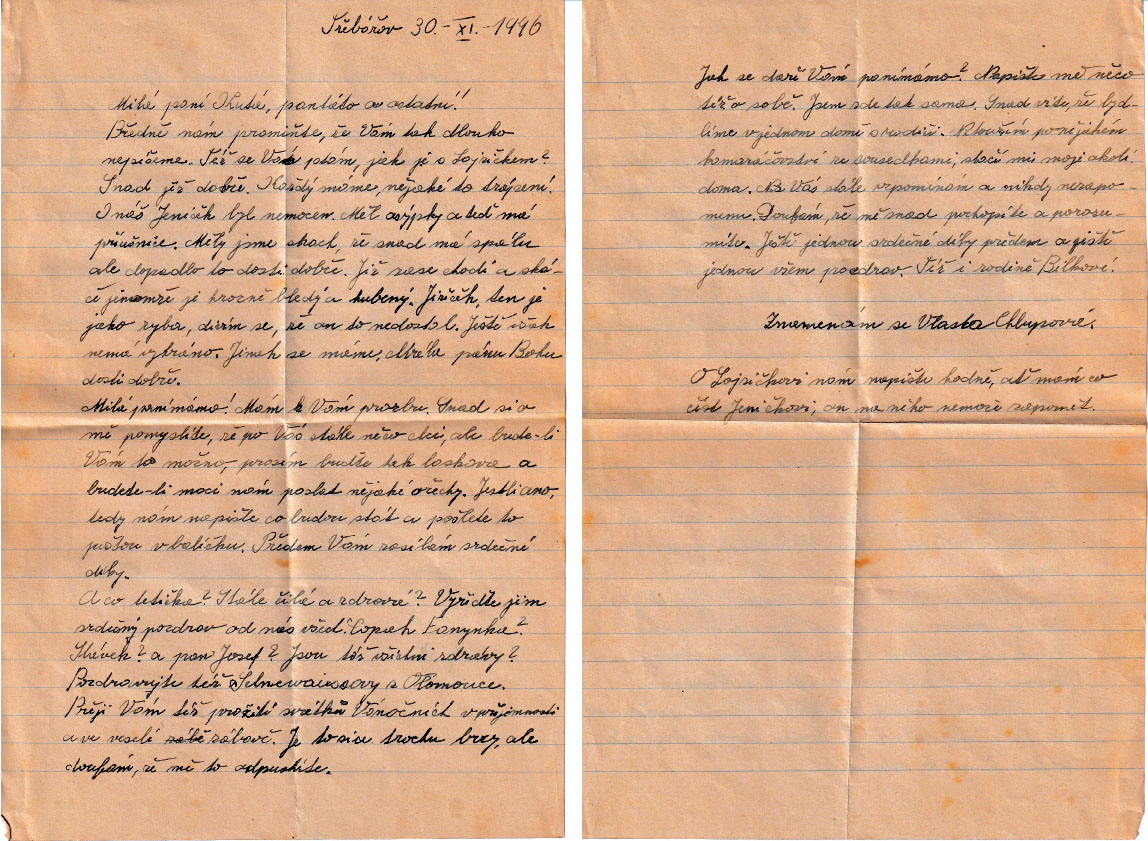 Třebářov 30.-XI.-1946
Milá paní Hlutá, pantáto a ostatní!
Předně nám promiňte, že Vám tak dlouho
nepíšeme. Též se Vás ptám, jak je s Lojzíčkem?
Snad již dobře. Každý máme, nějaké to trápení.
I náš Jeníček byl nemocen. Měl osýpky a teď má
příušnice. Měly jsme strach, že snad má spálu
ale dopadlo to dosti dobře. Již zase chodí a ská-
če jenomže je hrozně bledý a hubený. Jiříček, ten je
jako ryba, divím se, že on to nedostal. Ještě však
nemá vybráno. Jinak se máme, chvála pánu Bohu
dosti dobře.
Milá panímámo! Mám k Vám prozbu. Snad si o
mě pomyslíte, že po Vás stále něco chci, ale bude-li
Vám to možno, prosím buďte tak laskava a
budete-li moci nám poslat nějaké ořechy. Jestli ano,
tedy nám napište co budou stát a pošlete to
poštou v balíčku. Předem Vám zasílám srdečné
díky.
A co tetička? Stále čilá a zdravá? Vyřiďte jim
srdečný pozdrav od nás všech. Copak Fanynka?
Stévek? a pan Josef? Jsou též všichni zdrávy?
Pozdravujte též z Olomouce.
Přeji Vám též prožití svátků Vánočních v příjemnosti
a ve veselé zábě zábavě. Je to sice trochu brzy, ale
doufám, že mě to odpustíte.
Jak se daří Vám panímámo? Napište mě něco
též o sobě. Jsem zde tak sama. Snad víte, že byd-
líme v jednom domě s rodiči. Netoužím po nějakém
kamaráčovství ze sousedkami, stačí mi moje okolí
doma. Na Vás stále vzpomínám a nikdy nezapo-
menu. Doufám, že mě snad pochopíte a porozu-
míte. Ještě jednou srdečné díky předem a ještě
jednou všem pozdrav. Též i rodině Bílkové.
Znamenám se Vlasta Chlupové.
O Lojzíčkovi nám napište hodně, ať mám co
číst Jeníčkovi, on na něho nemože zapomět.